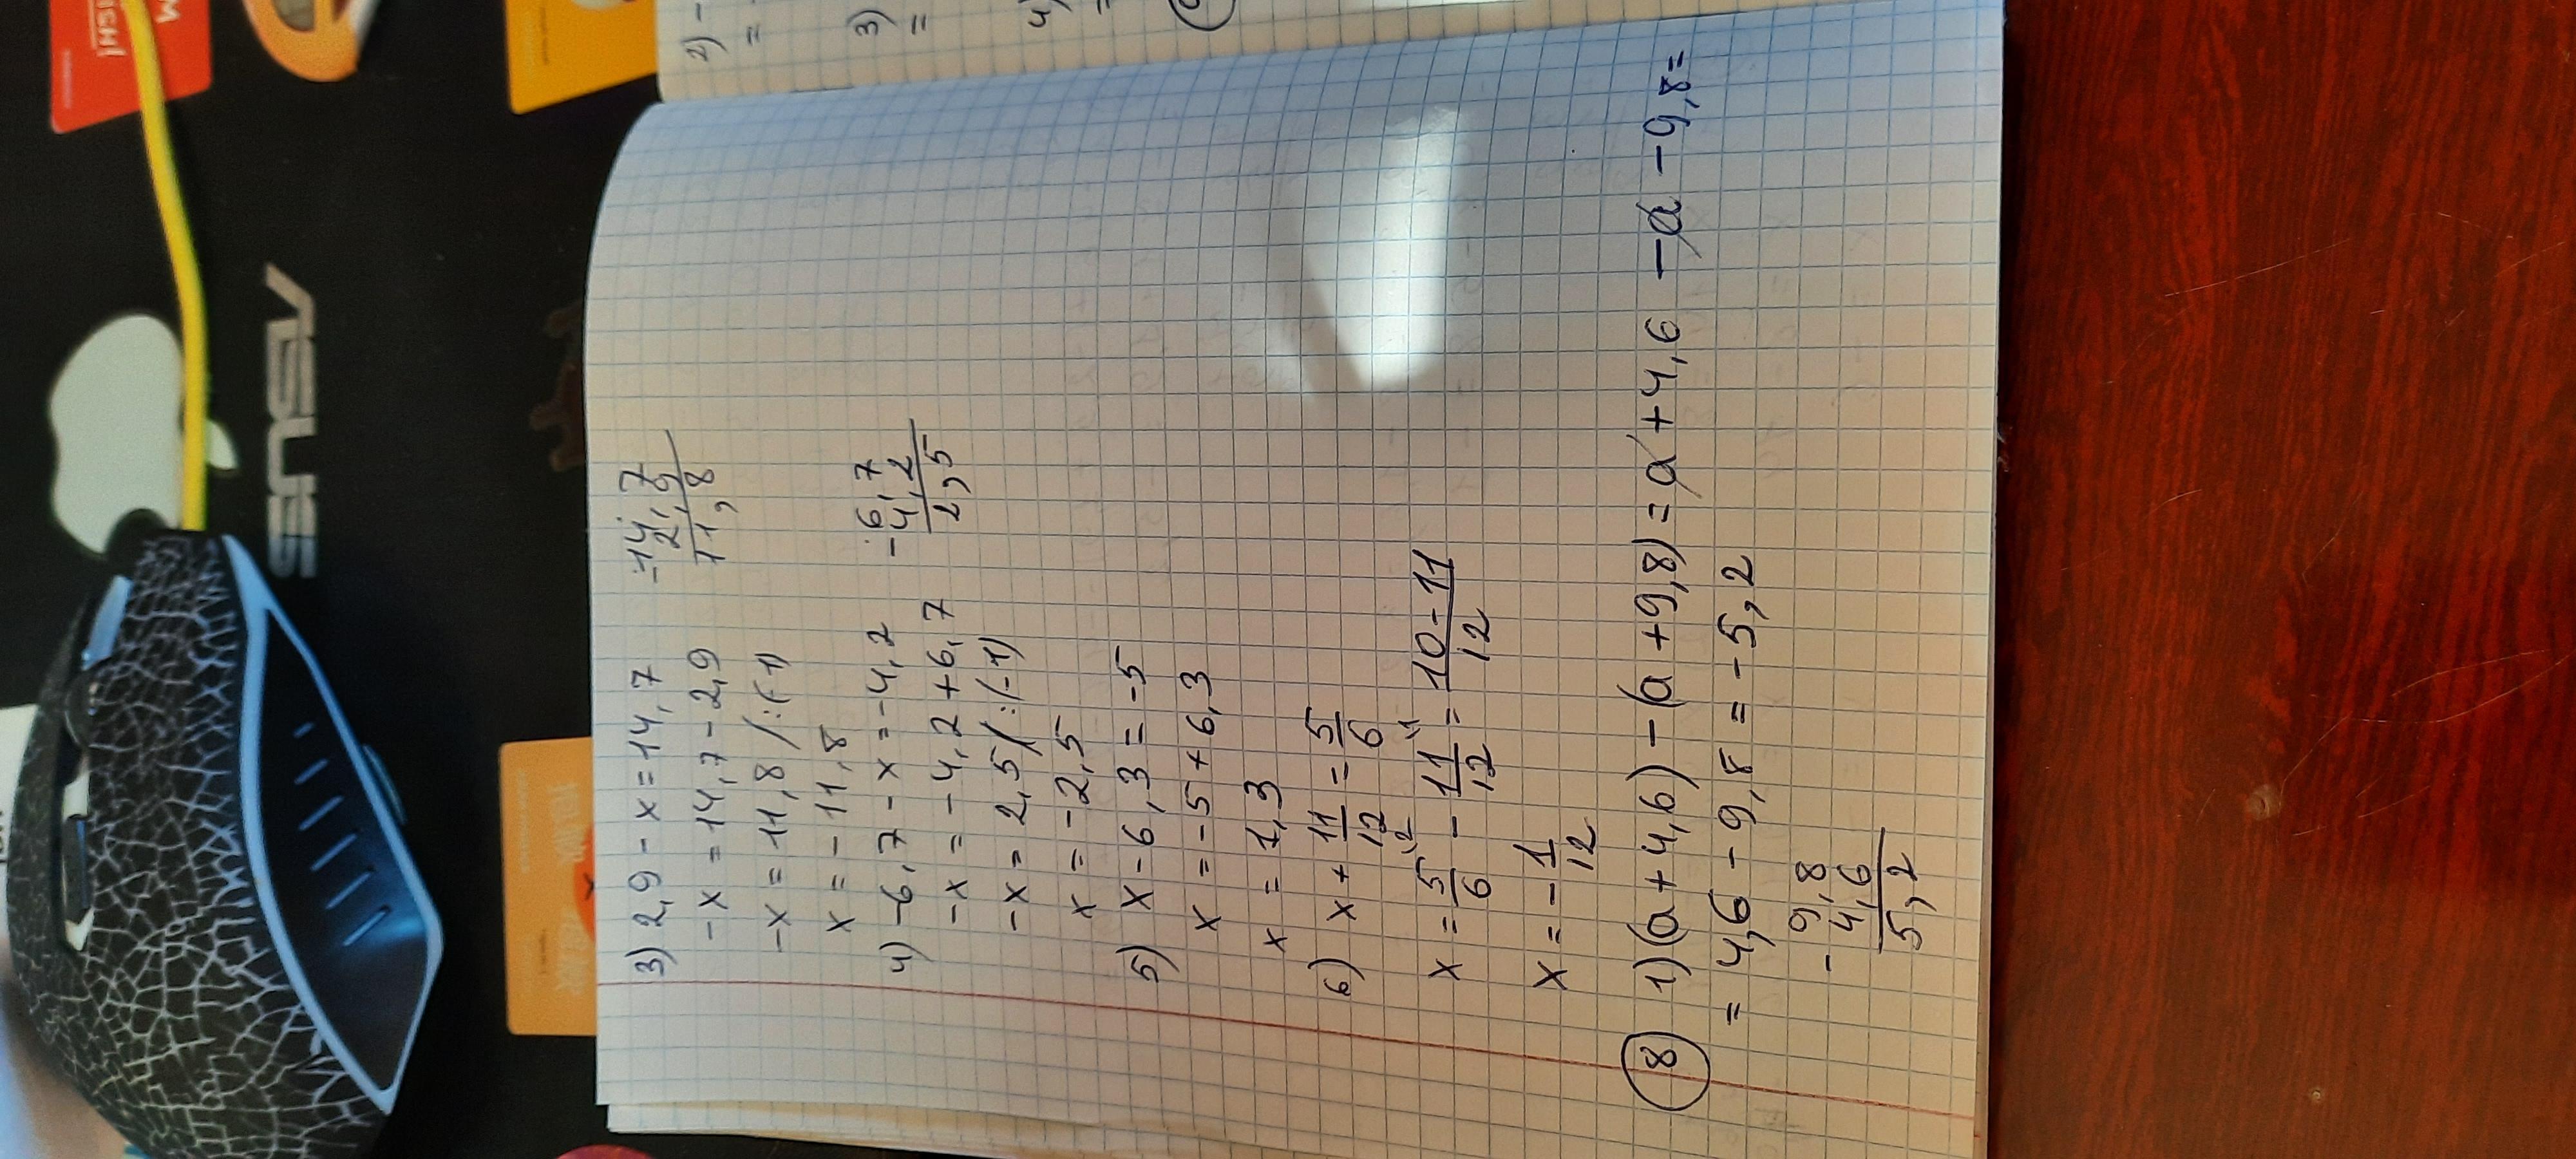 3) 2,9 - x = 14,7
-14,7
2,9
11,8
-x = 14,7 - 2,9
-x = 11,8 /:(-1)
x = -11,8
4) -6,7 - x = -4,2
-6,7
4,2
2,5
-x = -4,2 + 6,7
-x = 2,5 /:(-1)
x = -2,5
5) x - 6,3 = -5
x = -5 + 6,3
x = 1,3
6) x + 11/12 = 5/6
x = 5/6 \2 - 11/12 \1 = 10-11/12
x = -1/12
8 1) (a + 4,6) - (a + 9,8) = a + 4,6 - a - 9,8 =
= 4,6 - 9,8 = -5,2
-9,8
4,6
5,2
2) -
=
3)
=
4)
=
ASUS
ISH!